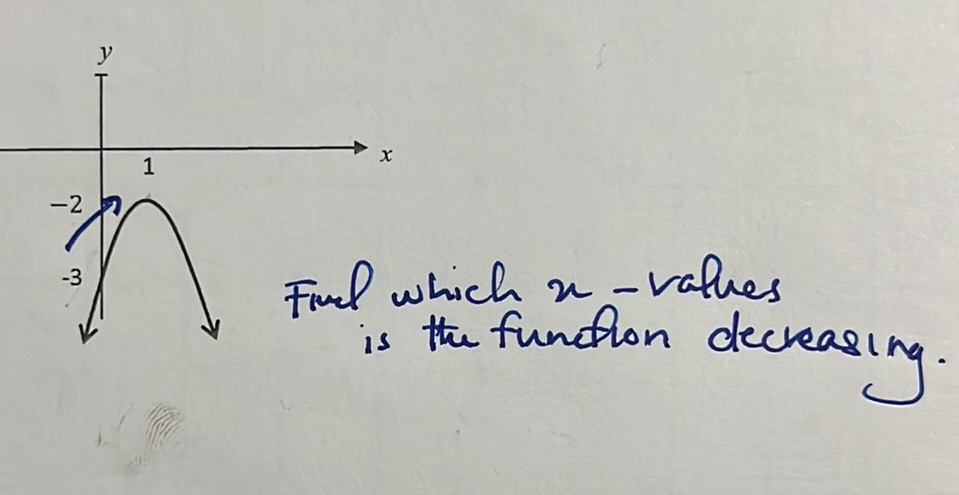 y
x
1
−2
-3
Find which x - values
is the function decreasing.